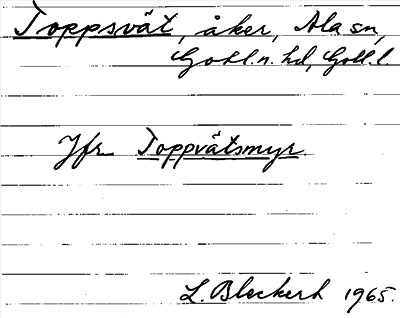 Toppsvät, åker, Ala sn,
Gotl. n. hd, Gotl. l
Jfr Toppvätsmyr.
L. Bleckert 1965.